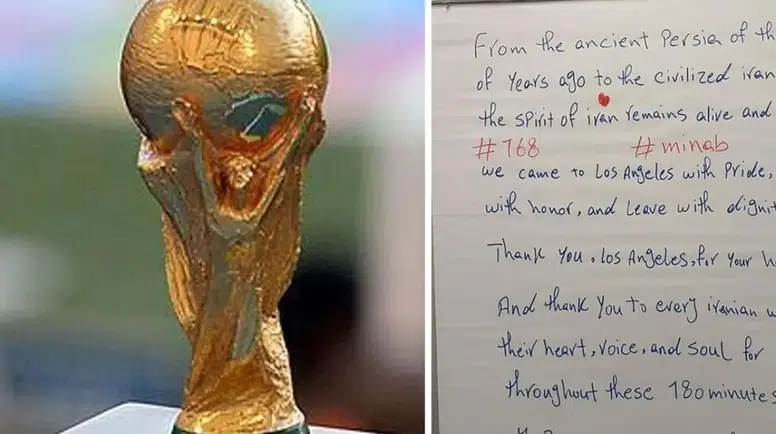 From the ancient Persia of
of years ago to the civilized
the spirit of iran remains alive and
#168 #minab
we came to Los Angeles with Pride,
with honor, and Leave with
Thank You, Los Angeles, for Your
And thank You to every iranian
their heart, voice, and soul for
throughout these 180 minutes